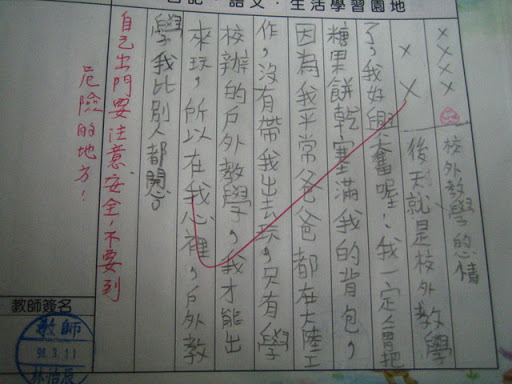 日記·語文·生活學習園地
××××
校外教學的心情
××
後天就是校外教學
了,我好興奮喔!我一定會把
糖果餅乾塞滿我的背包,
因為我平常爸爸都在大陸工
作,沒有帶我出去玩,只有學
校辦的戶外教學,我才能出
來玩,所以在我心裡,戶外教
學我比別人都開心
自己出門要注意安全,不要到
危險的地方!
教師簽名
教師
98.3.11